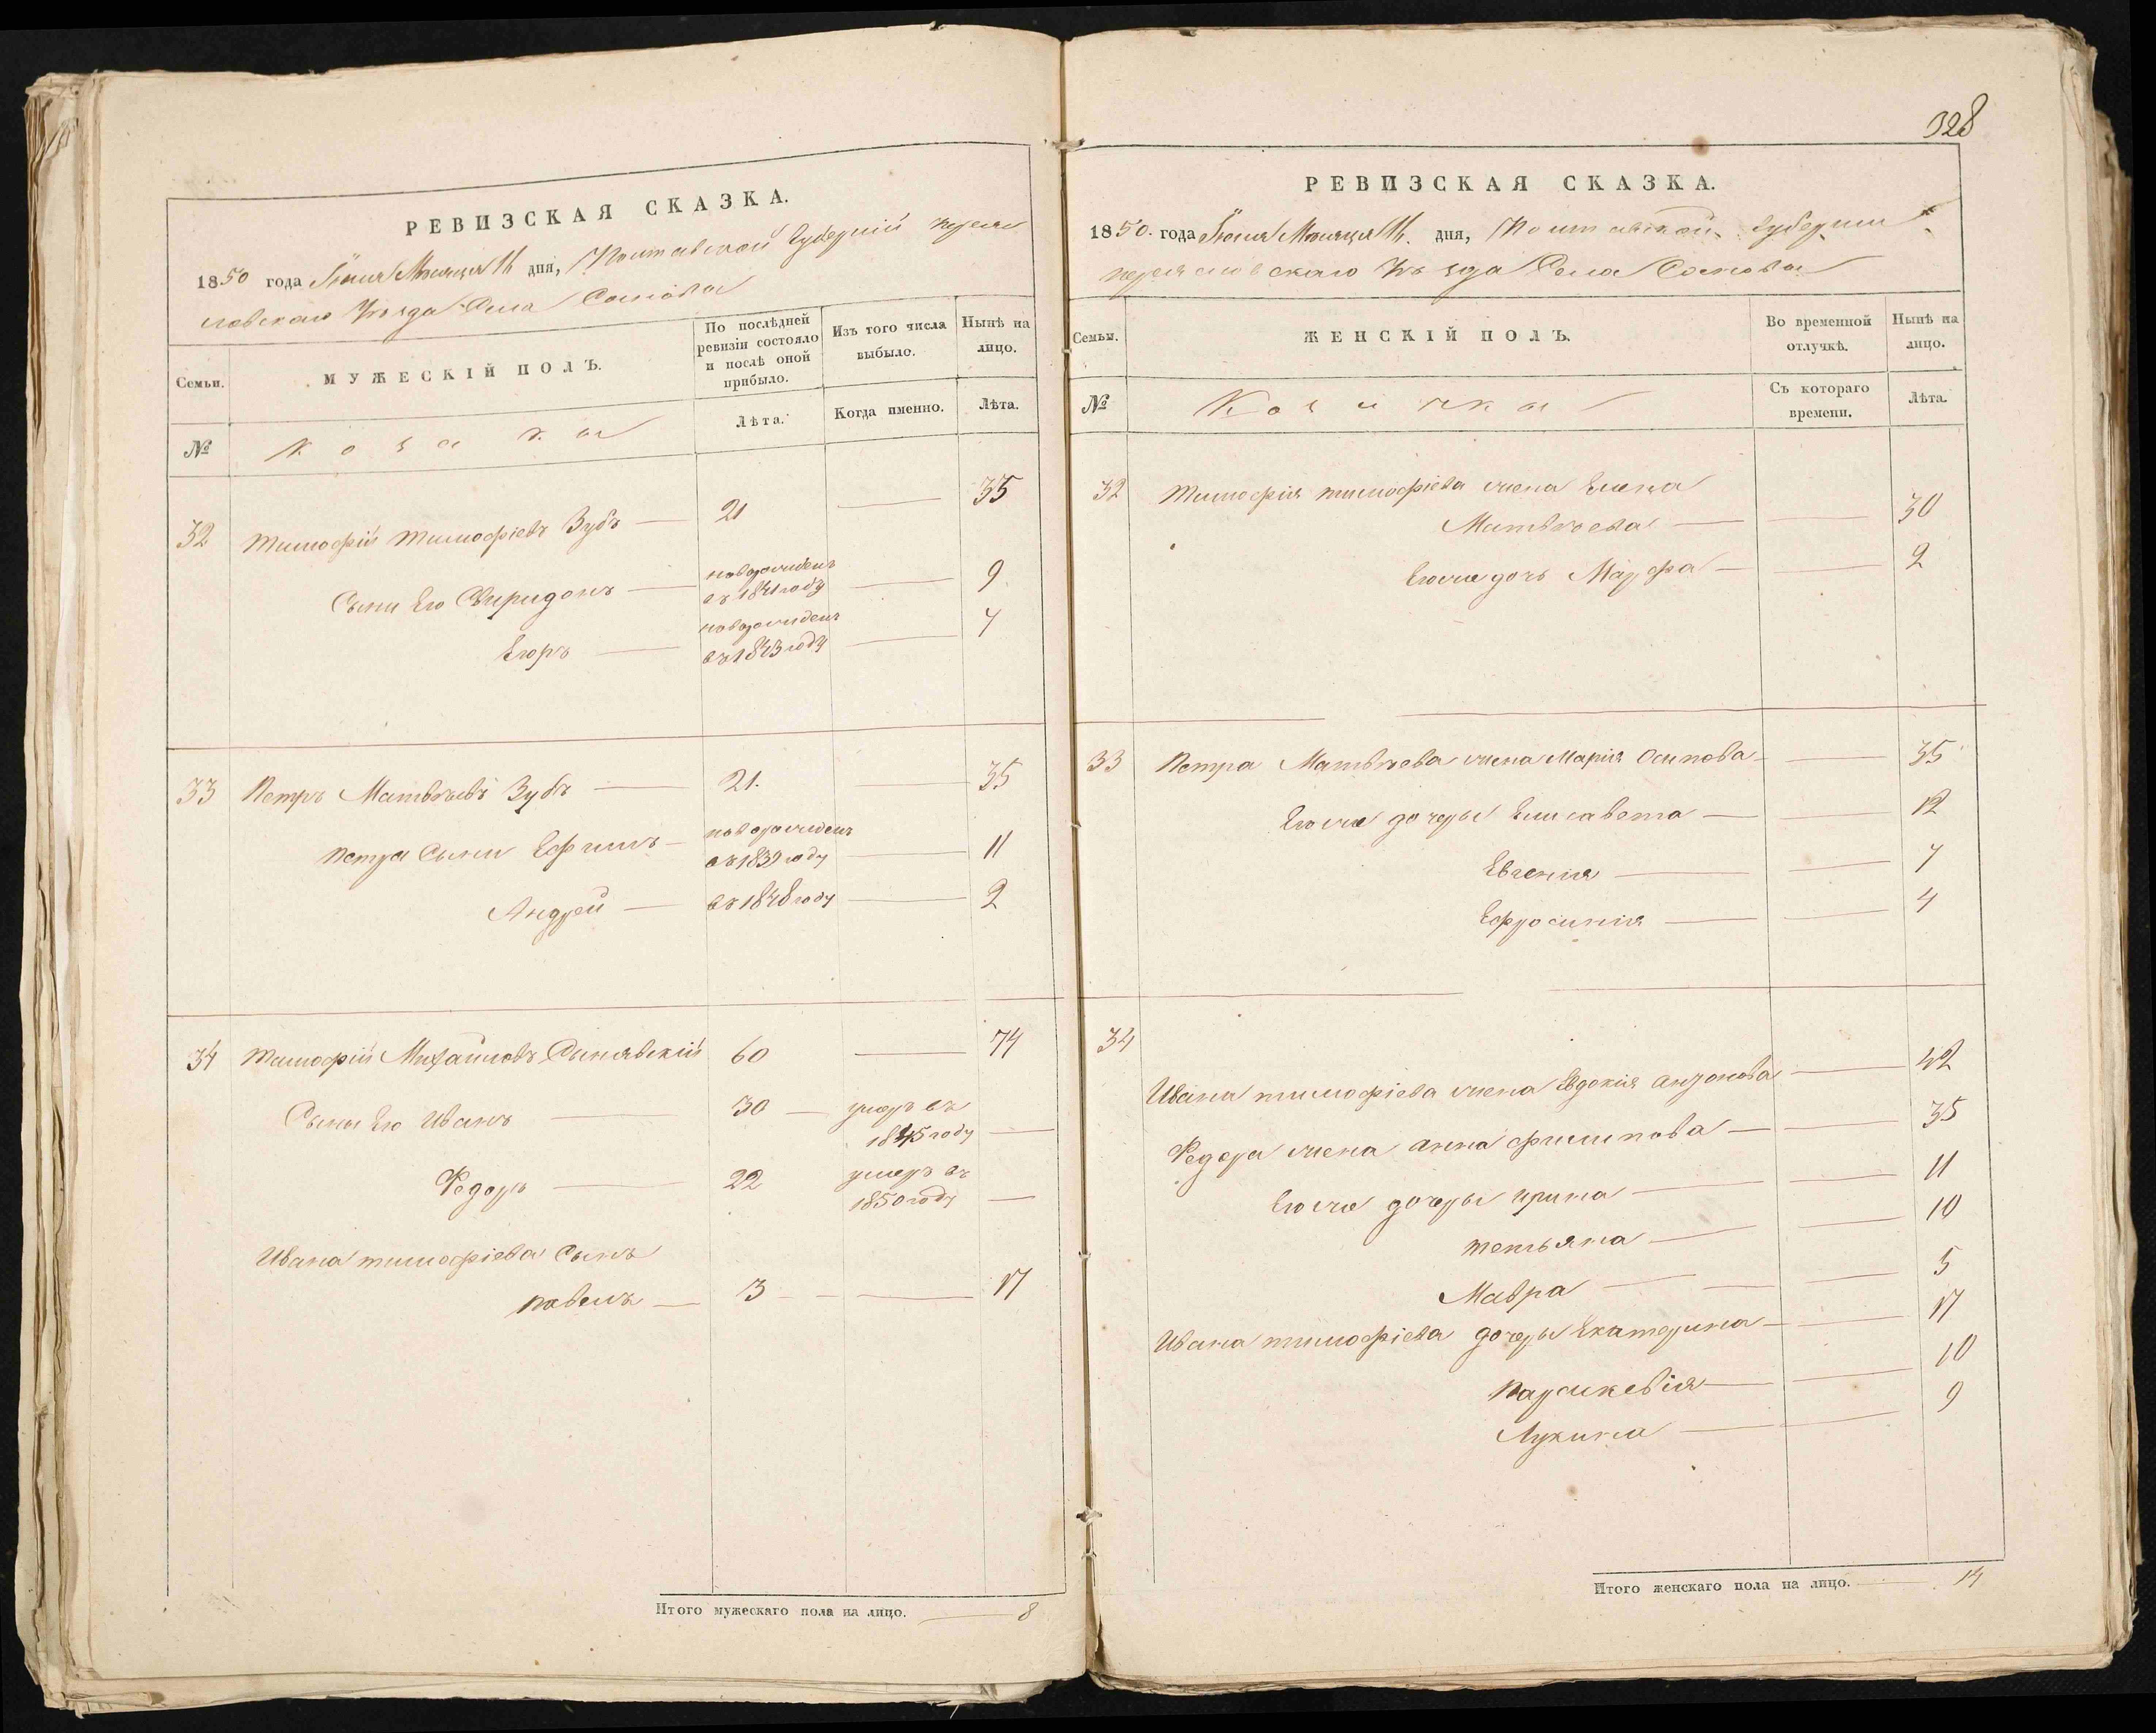 РЕВИЗСКАЯ СКАЗКА.
1850 года Іюня Месяца 16 дня, Полтавской Губерніи перея
словскаго уезда Села Сосновы
Семьи.
МУЖЕСКІЙ ПОЛЪ.
По послѣдней ревизіи состояло и послѣ оной прибыло.
Изъ того числа выбыло.
Нынѣ на лицо.
№
Козаки
Лѣта.
Когда именно.
Лѣта.
32 Тимофій Тимофіевъ Зубъ 21 35
Сыни Его Свиридонъ новорожденъ въ 1841 году 9
Егоръ новорожденъ въ 1843 году 7
33 Петръ Матвѣевъ Зубъ 21. 35
Петра Сыни Ефимъ новорожденъ въ 1839 году 11
Андрей въ 1848 году 2
34 Тимофій Михайловъ Синявскій 60 74
Сыны Его Иванъ 30 умеръ въ 1845 году
Федоръ 22 умеръ въ 1850 году
Ивана тимофіева Сынъ
павелъ 3 17
Итого мужескаго пола на лицо. 8
328
РЕВИЗСКАЯ СКАЗКА.
1850. года Іюня Месяца 16. дня, Полтавской Губерніи
переясловскаго уезда Села Сосновы
Семьи.
ЖЕНСКІЙ ПОЛЪ.
Во временной отлучкѣ.
Нынѣ на лицо.
№
Козачки
Съ котораго времени.
Лѣта.
32 Тимофія тимофіева жена Елена
Матвѣева 30
Егоже дочь Марфа 2
33 Петра Матвѣева жена Марія Осипова 35
Егоже дочеры Елисавета 12
Евгенія 7
Ефросинія 4
34
Ивана тимофіева жена Евдокія Антонова 42
Федора жена анна филипова 35
Егоже дочеры ирина 11
тетьяна 10
Мавра 5
Ивана тимофіева дочеры Екатерина 17
параскевія 10
Лукина 9
Итого женскаго пола на лицо. 14